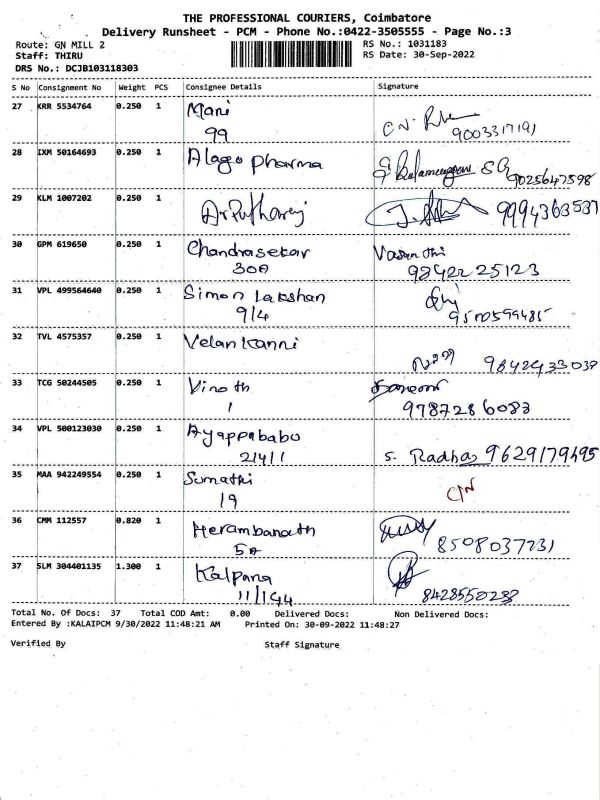 THE PROFESSIONAL COURIERS, Coimbatore
Delivery Runsheet - PCM - Phone No.:0422-3505555 - Page No.:3
Route: GN MILL 2 RS No.: 1031183
Staff: THIRU RS Date: 30-Sep-2022
DRS No.: DCJB103118303
S No Consignment No Weight PCS Consignee Details Signature
27 KRR 5534764 0.250 1 Mani
99 9003317191
28 IXM 50164693 0.250 1 Alago pharma 9025647598
29 KLM 1007202 0.250 1 9994363537
30 GPM 619650 0.250 1 Chandrasekar Vasanthi
30A 98422 25123
31 VPL 499564640 0.250 1 Simon Lakshan
9/4
32 TVL 4575357 0.250 1 Velankanni
9842433038
33 TCG 50244505 0.250 1 Vinoth
1 9787286083
34 VPL 500123030 0.250 1 Ayyappababu
214/1 S. Radha 9629179495
35 MAA 942249554 0.250 1 Sumathi
19
36 CMM 112557 0.820 1 Herambanath
5A 8508037231
37 SLM 304401135 1.300 1 Kalpana
11/194 8428550233
Total No. Of Docs: 37 Total COD Amt: 0.00 Delivered Docs: Non Delivered Docs:
Entered By :KALAIPCM 9/30/2022 11:48:21 AM Printed On: 30-09-2022 11:48:27
Verified By Staff Signature